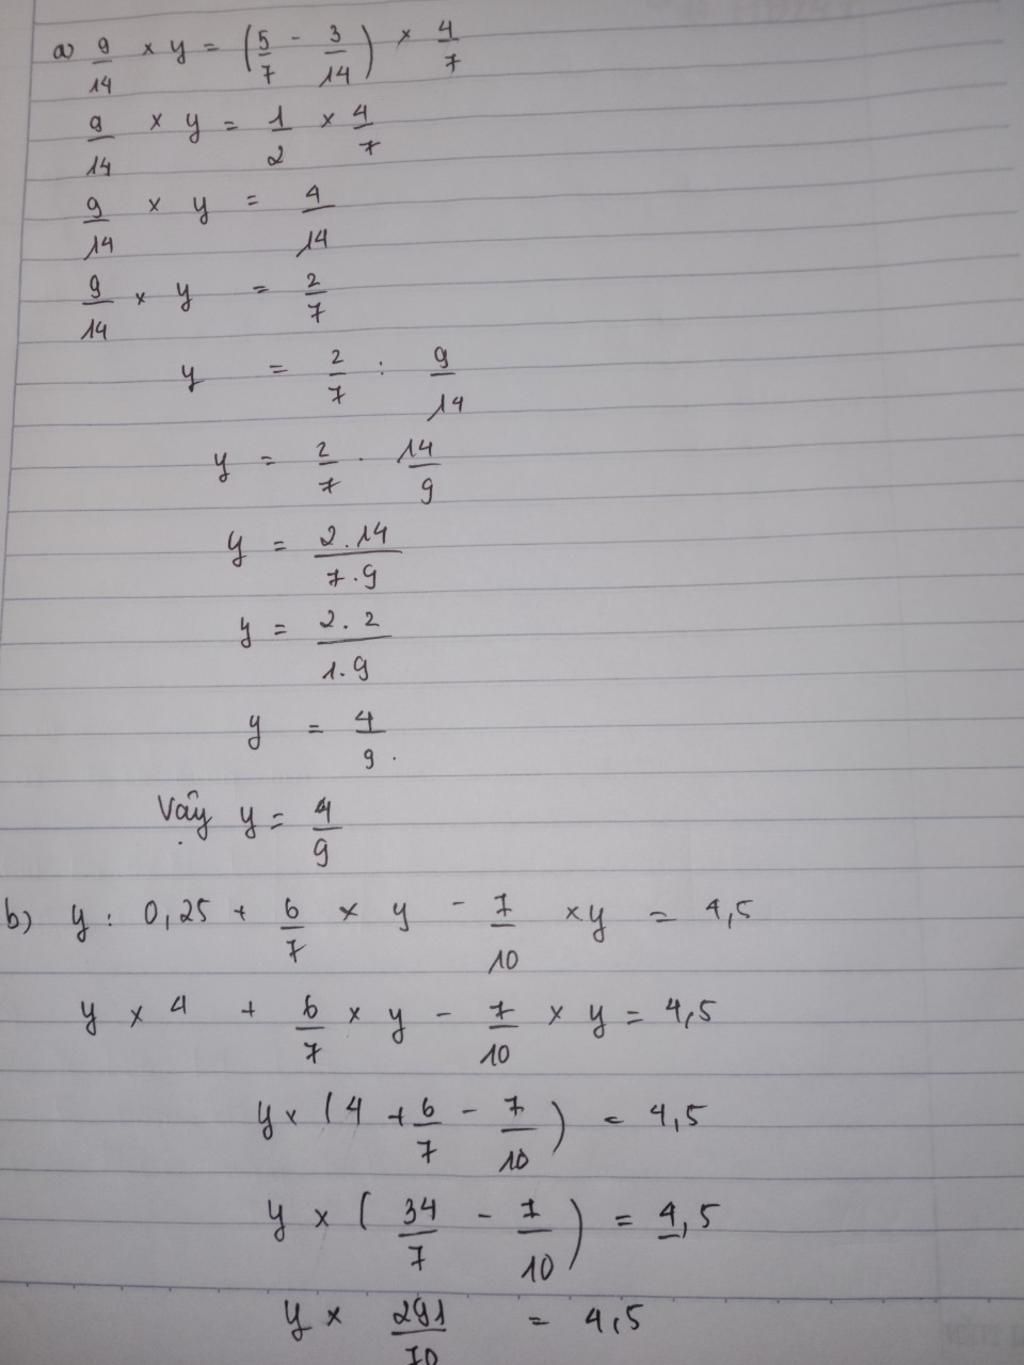 a) 9/14 × y = (5/7 - 3/14) × 4/7
9/14 × y = 1/2 × 4/7
9/14 × y = 4/14
9/14 × y = 2/7
y = 2/7 : 9/14
y = 2/7 . 14/9
y = 2.14/7.9
y = 2.2/1.9
y = 4/9.
Vậy y = 4/9
b) y : 0,25 + 6/7 × y - 7/10 × y = 4,5
y × 4 + 6/7 × y - 7/10 × y = 4,5
y × (4 + 6/7 - 7/10) = 4,5
y × (34/7 - 7/10) = 4,5
y × 291/70 = 4,5